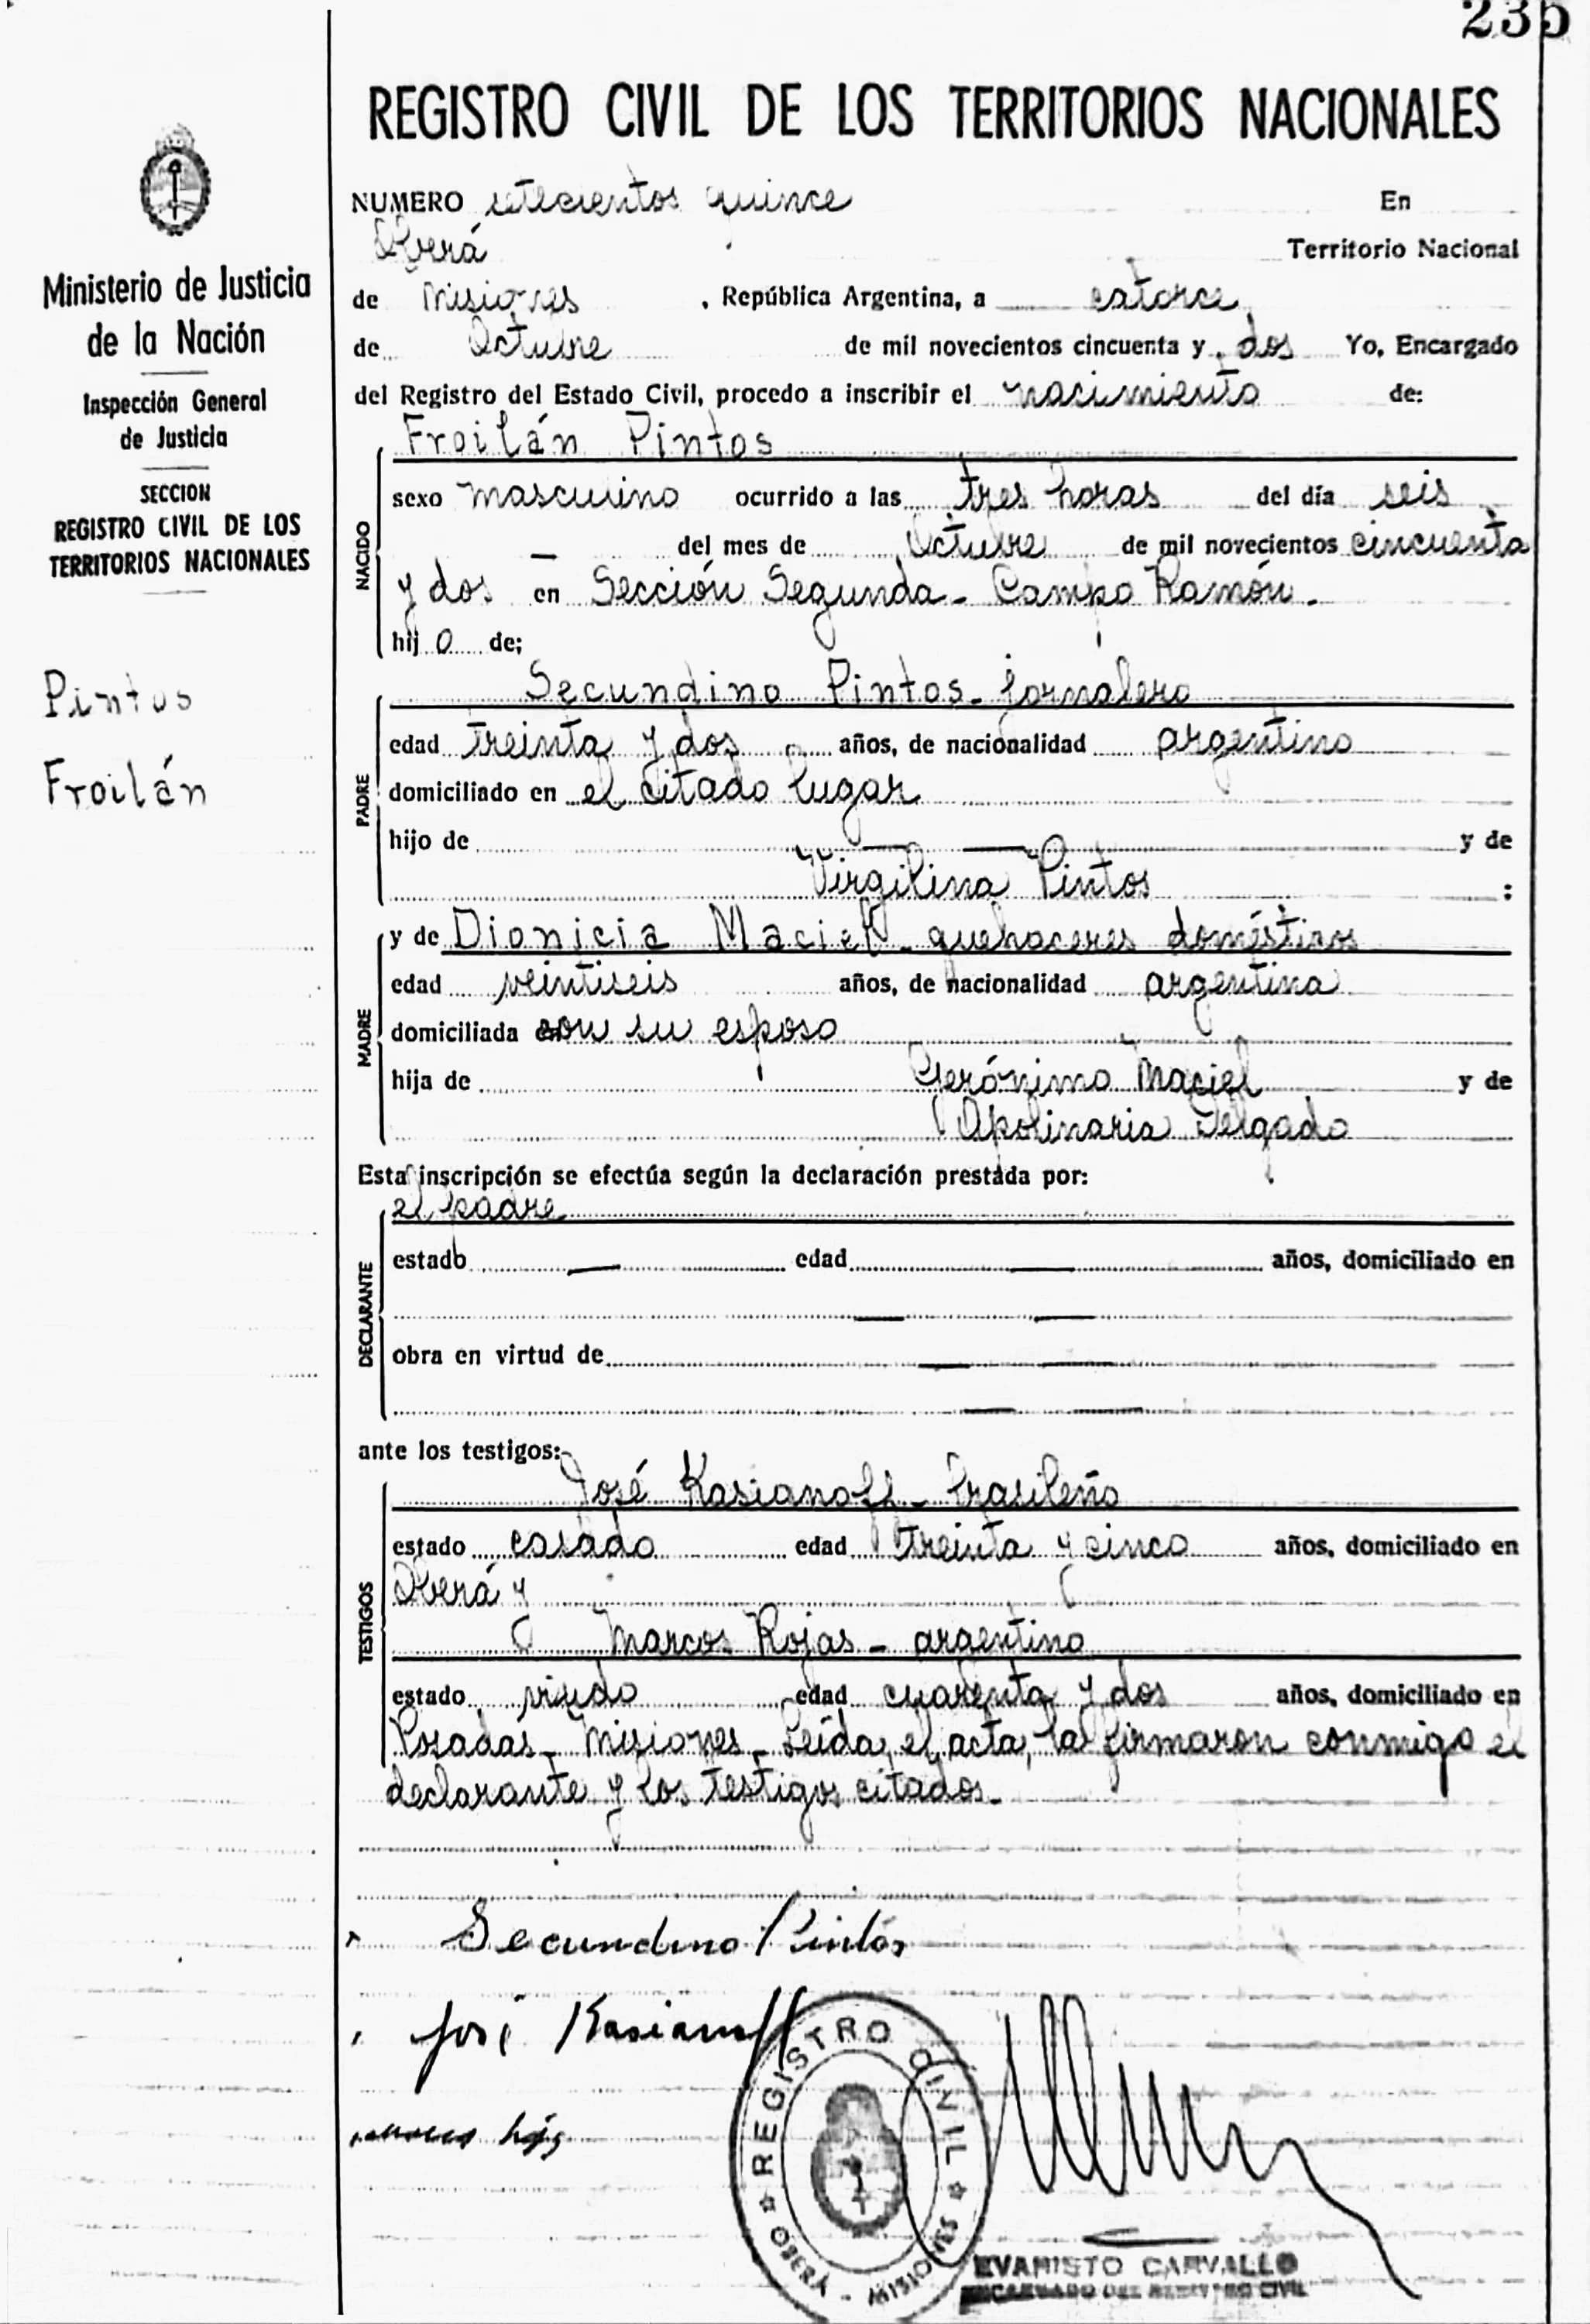 235
REGISTRO CIVIL DE LOS TERRITORIOS NACIONALES
Ministerio de Justicia
de la Nación
Inspección General
de Justicia
SECCION
REGISTRO CIVIL DE LOS
TERRITORIOS NACIONALES
Pintos
Froilán
NUMERO setecientos quince En
Oberá Territorio Nacional
de Misiones , República Argentina, a catorce
de Octubre de mil novecientos cincuenta y dos Yo, Encargado
del Registro del Estado Civil, procedo a inscribir el nacimiento de:
NACIDO
Froilán Pintos
sexo masculino ocurrido a las tres horas del día seis
— del mes de Octubre de mil novecientos cincuenta
y dos en Sección Segunda - Campo Ramón.
hijo de;
PADRE
Secundino Pintos - jornalero
edad treinta y dos años, de nacionalidad argentino
domiciliado en el citado lugar
hijo de — — y de
Virgilina Pintos :
MADRE
y de Dionicia Maciel - quehaceres domésticos
edad veintiseis años, de nacionalidad argentina
domiciliada con su esposo
hija de Gerónimo Maciel y de
Apolinaria Delgado
Esta inscripción se efectúa según la declaración prestada por:
DECLARANTE
el padre
estado — edad — años, domiciliado en
— —
obra en virtud de — —
— —
ante los testigos:
TESTIGOS
José Kasianoff - brasileño
estado casado edad treinta y cinco años, domiciliado en
Oberá y
Marcos Rojas - argentino
estado viudo edad cuarenta y dos años, domiciliado en
Posadas - Misiones - Leída el acta, la firmaron conmigo el
declarante y los testigos citados.
Secundino Pintos
José Kasianoff
REGISTRO CIVIL
OBERÁ - MISIONES
EVARISTO CARVALLO
ENCARGADO DEL REGISTRO CIVIL